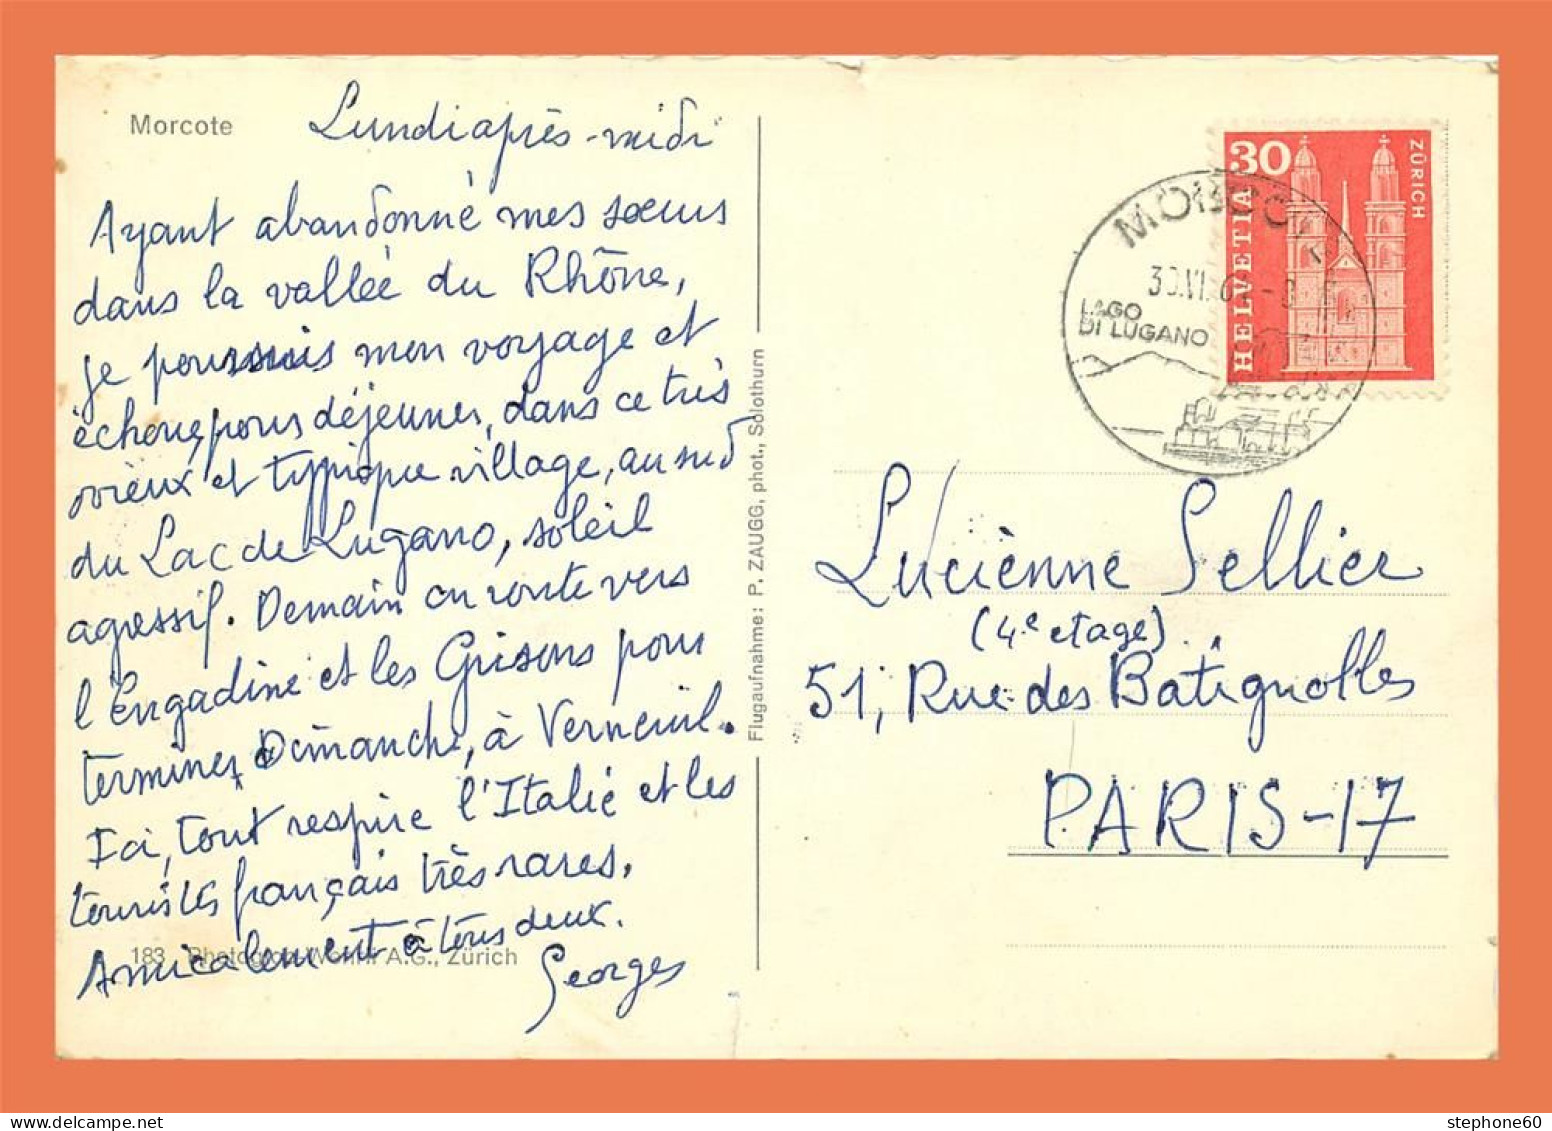 Morcote
Lundi après-midi
Ayant abandonné mes sœurs
dans la vallée du Rhône,
je poursuis mon voyage et
échoue, pour déjeuner, dans ce très
vieux et typique village, au sud
du Lac de Lugano, soleil
agressif. Demain en route vers
l'Engadine et les Grisons pour
terminer Dimanche, à Verneuil.
Ici, tout respire l'Italie et les
touristes français très rares.
Amicalement à tous deux.
Georges
183 Photoglob-Wehrli A.G., Zürich
Flugaufnahme: P. ZAUGG, phot., Solothurn
30
HELVETIA
ZÜRICH
MORCOTE
LAGO
DI LUGANO
Lucienne Sellier
(4e etage)
51, Rue des Batignolles
PARIS-17
stephone60